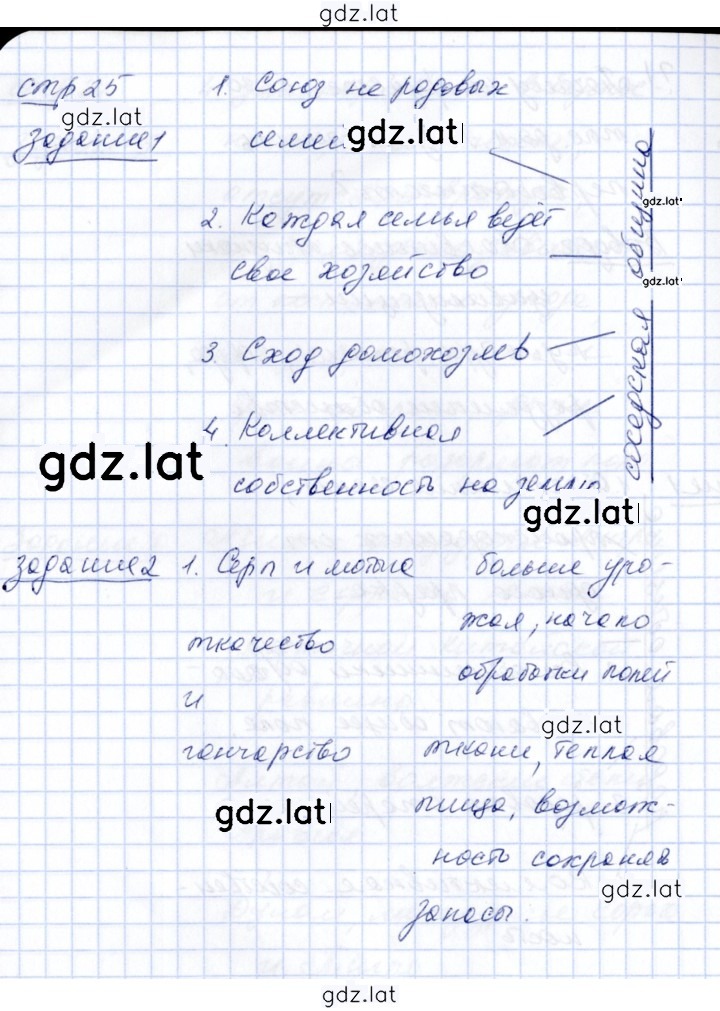 gdz.lat
стр 25
1. Союз не родовых
gdz.lat
задание 1
семей
gdz.lat
2. Каждая семья ведёт
свое хозяйство
3. Сход домохозяев
4. Коллективная
собственность на землю
соседская община
gdz.lat
gdz.lat
gdz.lat
gdz.lat
задание 2
1. Серп и мотыга
больше уро-
жая, начало
обработки полей
ткачество
и
гончарство
gdz.lat
ткани, теплая
пища, возмож-
ность сохранять
запасы.
gdz.lat
gdz.lat
gdz.lat